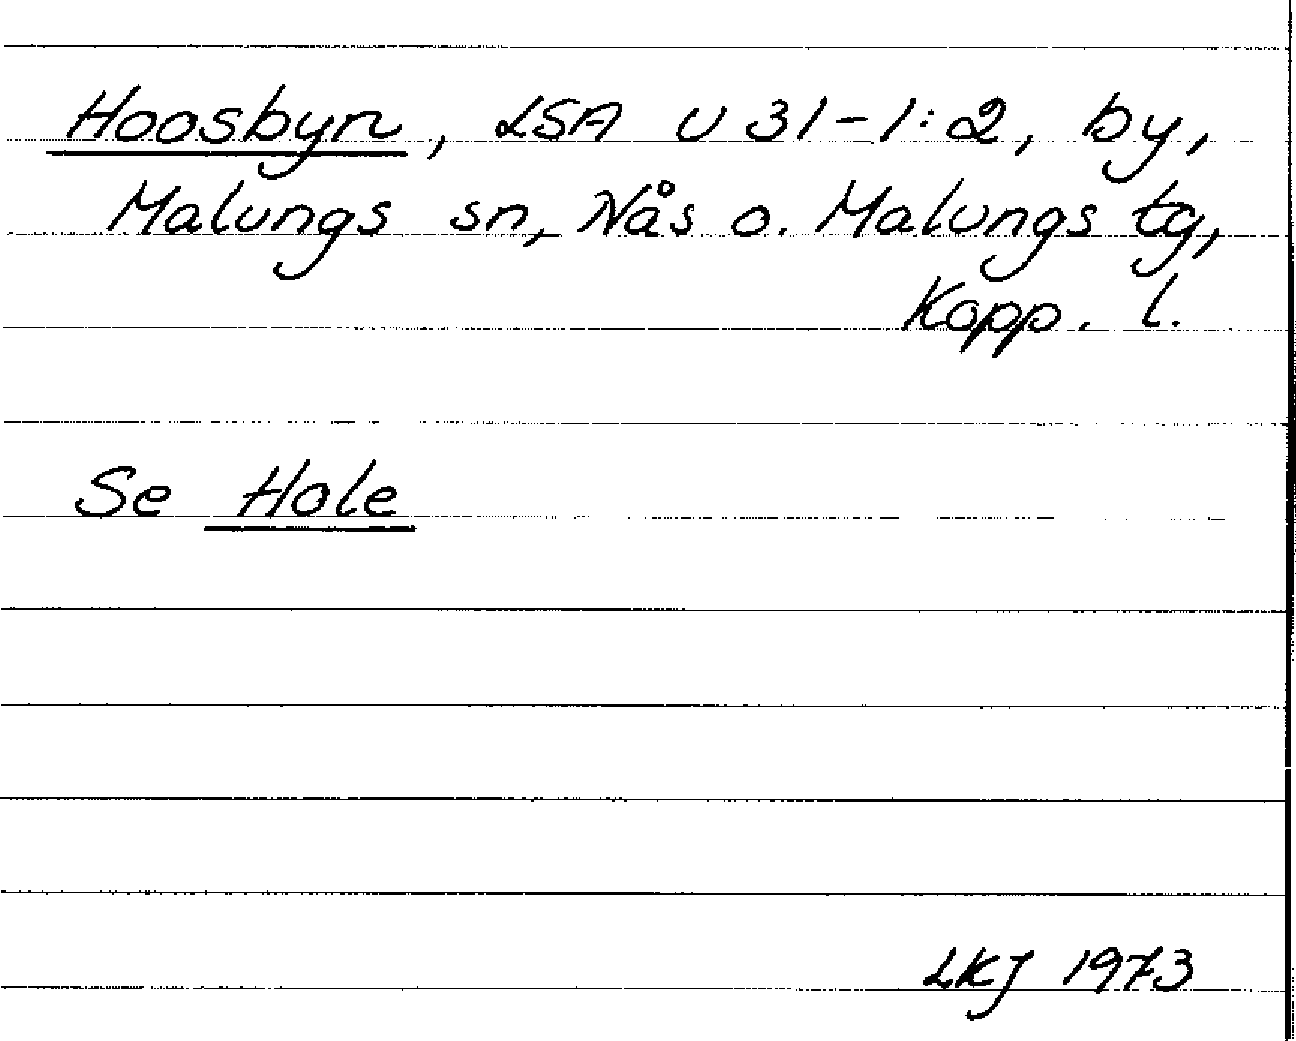 Hoosbyn, LSA U 31-1:2, by,
Malungs sn, Nås o. Malungs tg,
Kopp. l.
Se Hole
LKJ 1973